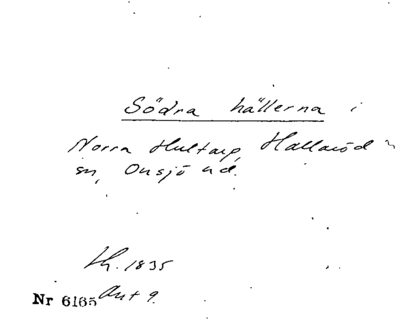 Södra hällerna i
Norra Hultarp, Hallaröd
sn, Onsjö hd.
Th. 1835
Nr 6165 Ant 9.